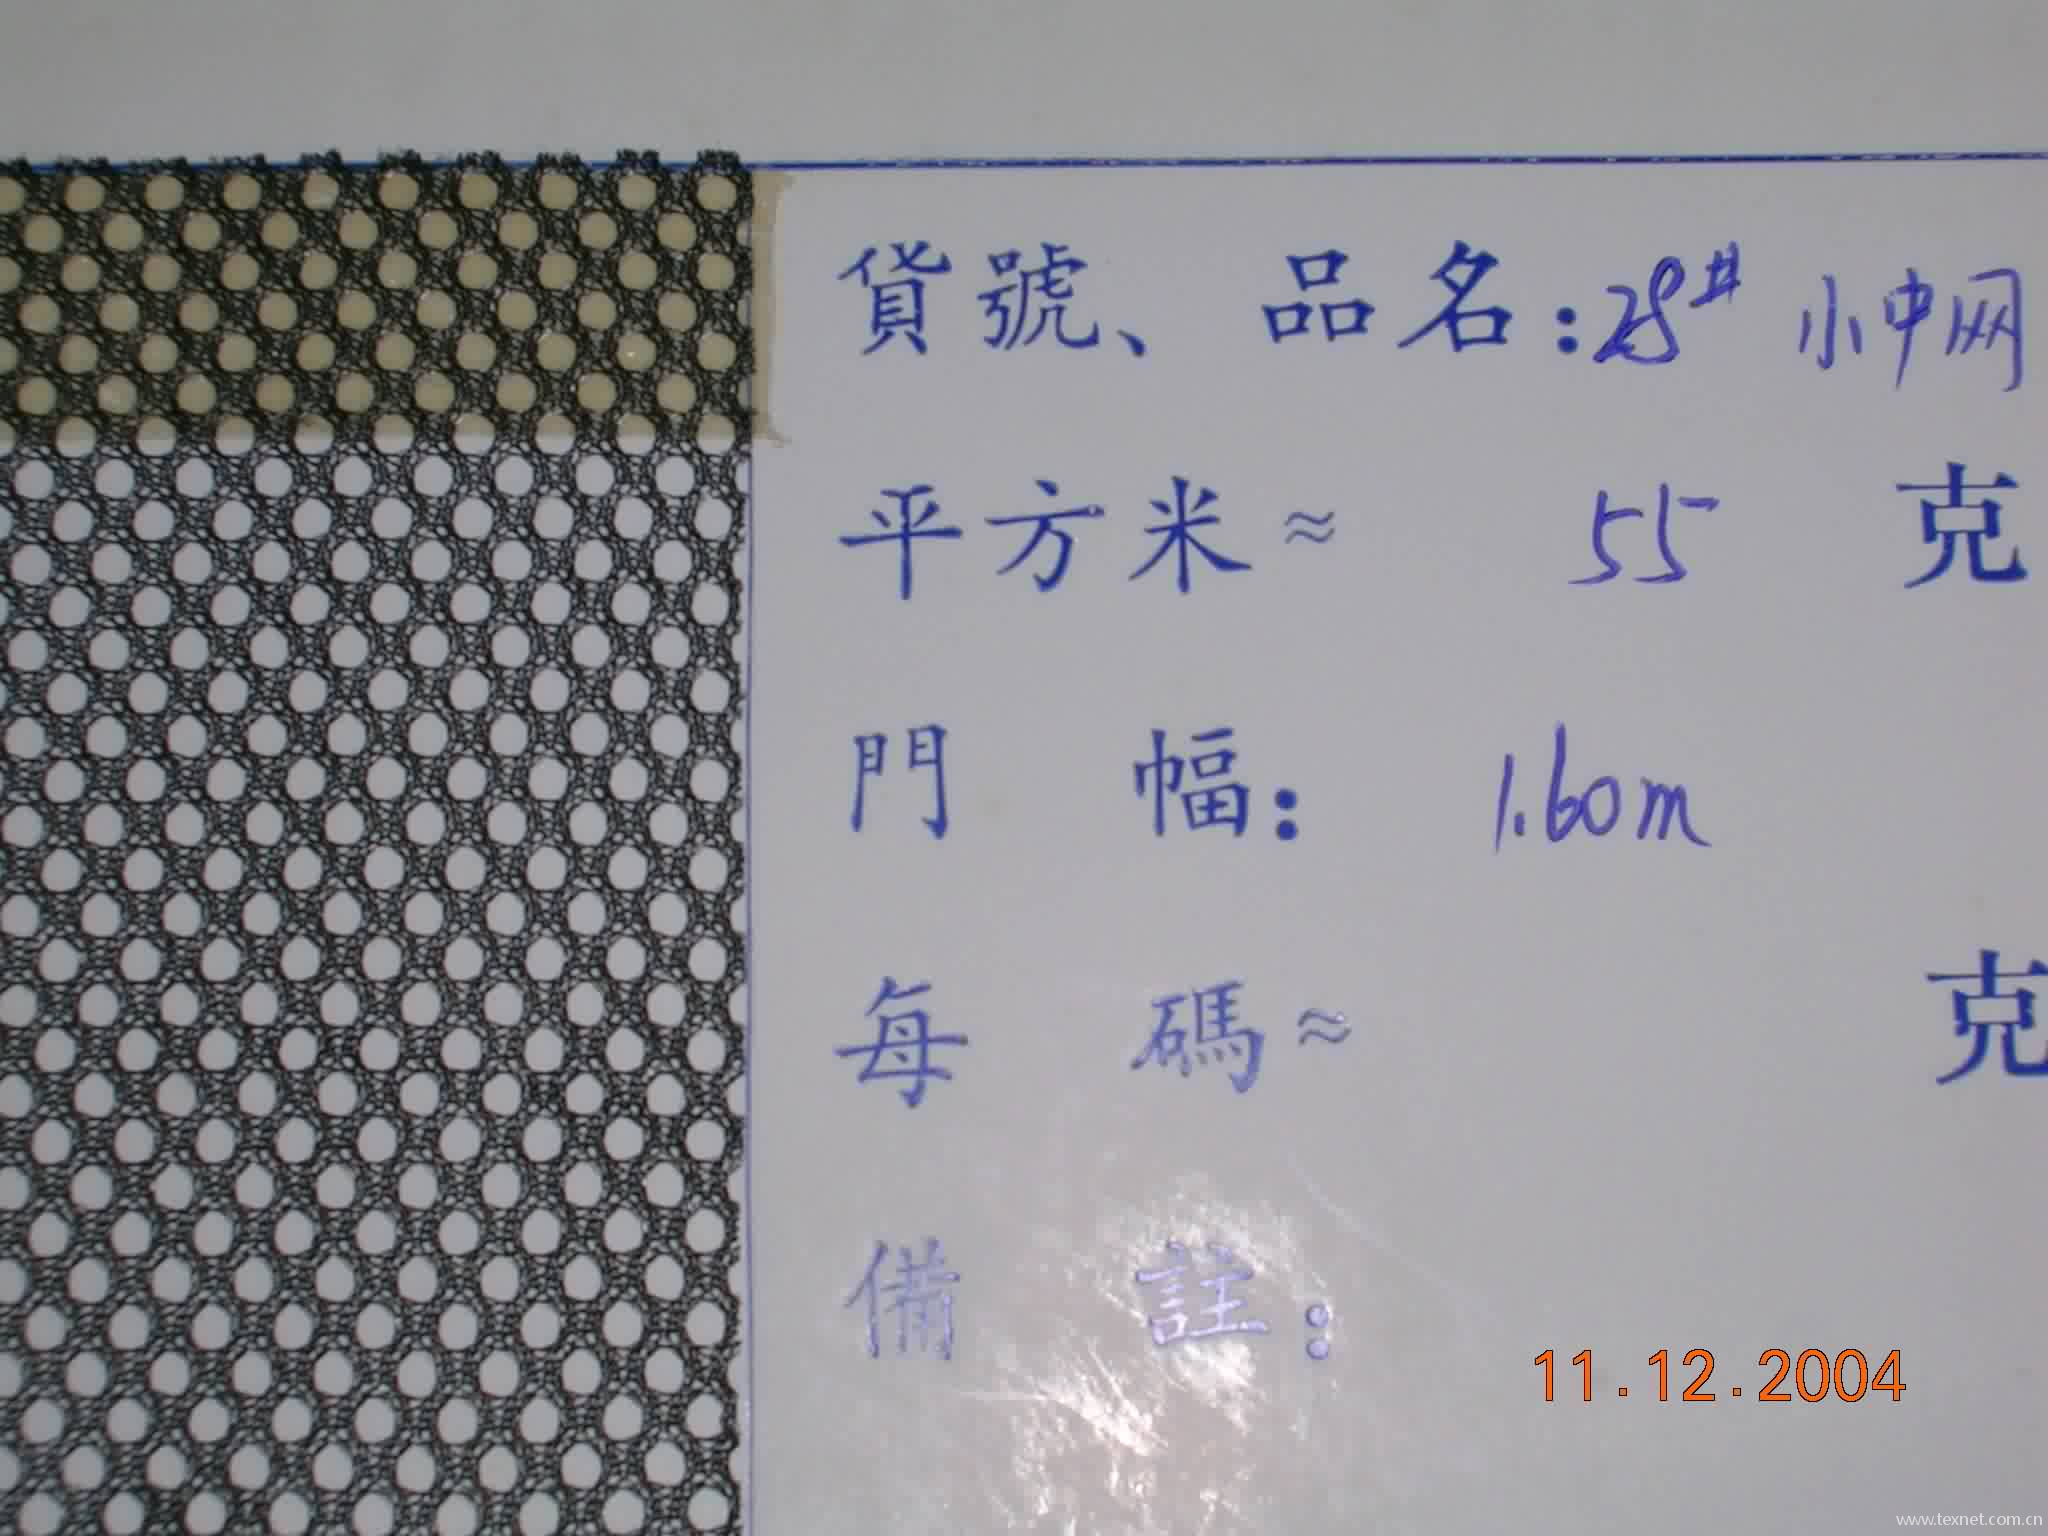 貨號、品名:28# 小中网
平方米≈ 55 克
門幅: 1.60m
每碼≈ 克
備註:
11.12.2004
www.texnet.com.cn